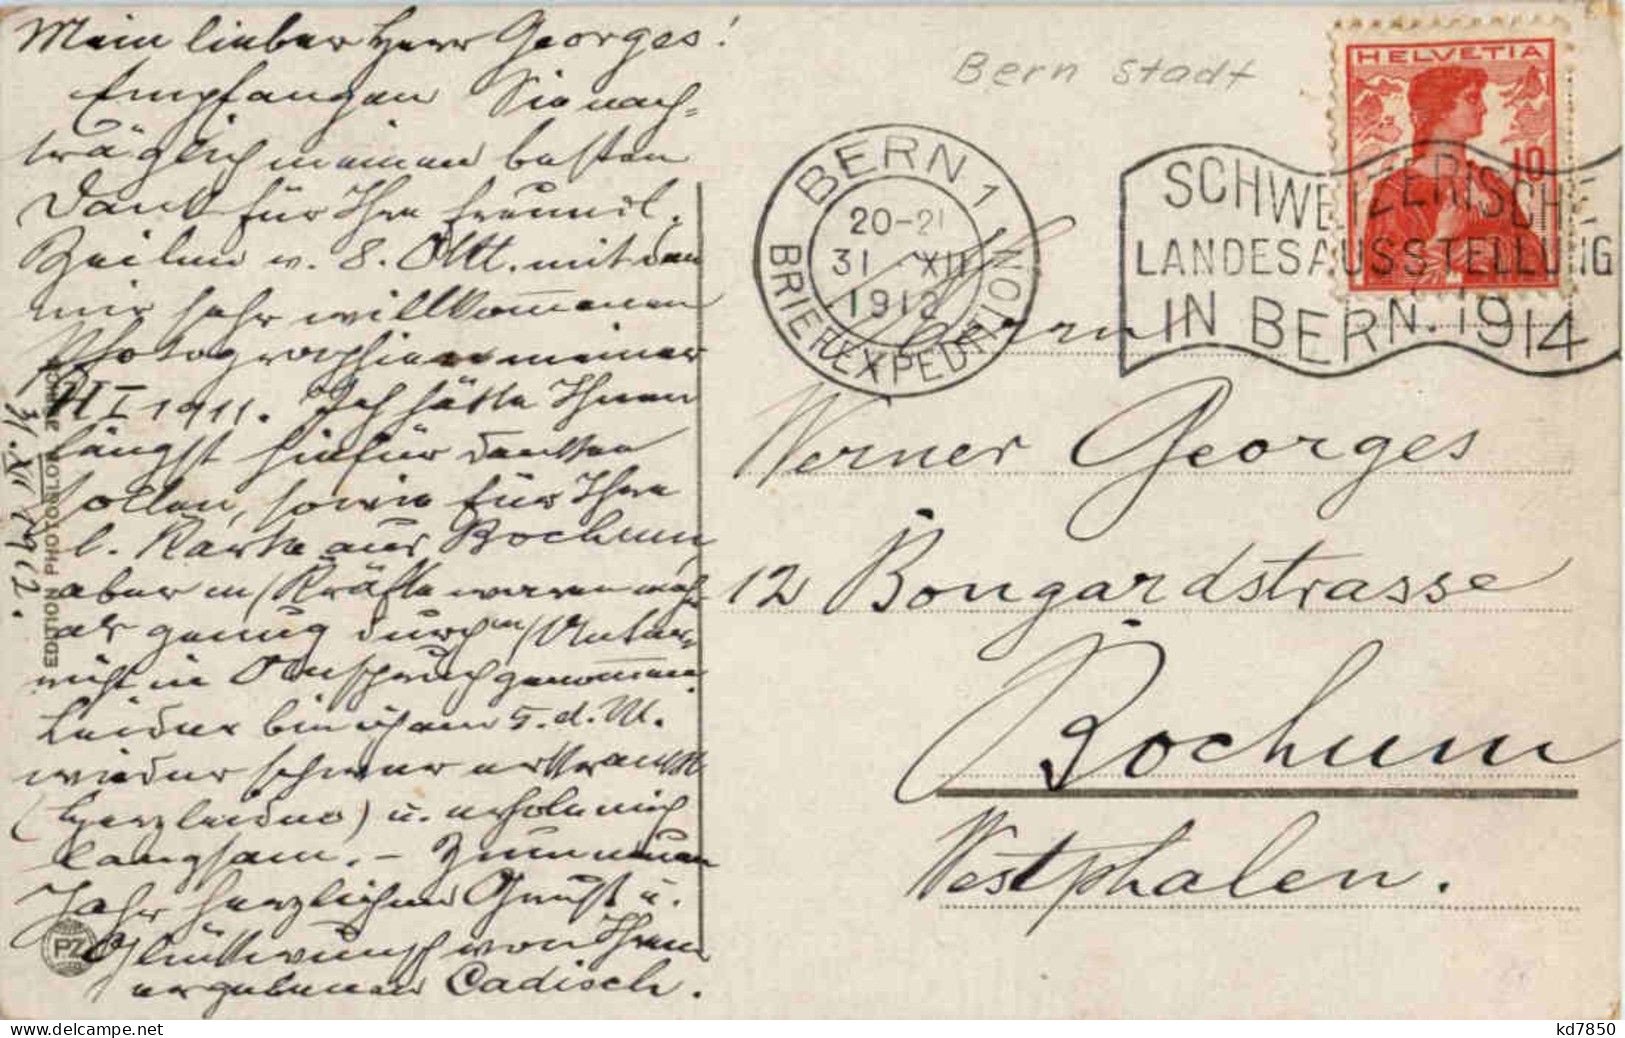 Mein lieber Herr Georges!
Empfangen Sie nach-
träglich meinen besten
Dank für Ihre freundl.
Zeilen v. 8. Okt. mit den
mir sehr willkommenen
Photographien meiner
1911. Ich hätte Ihnen
längst hiefür danken
sollen, sowie für Ihre
l. Karte aus Bochum,
aber m/Kräfte waren mehr
als genug durch m/Unter-
richt in Anspruch genommen.
Leider bin ich am 5. d. M.
wieder schwer erkrankt
(Herzleiden) u. erhole mich
langsam. – Zum neuen
Jahr herzlichen Gruß u.
Glückwunsch von Ihrem
ergebenen Cadisch.
31. XII 1912.
EDITION PHOTOGLOB ZÜRICH
PZ
Bern Stadt
HELVETIA
10
BERN 1
20-21
31 XII
1912
BRIEFEXPEDITION
SCHWEIZERISCHE
LANDESAUSSTELLUNG
IN BERN. 1914
Herrn
Werner Georges
12 Bongardstrasse
Bochum
Westphalen.
kd7850